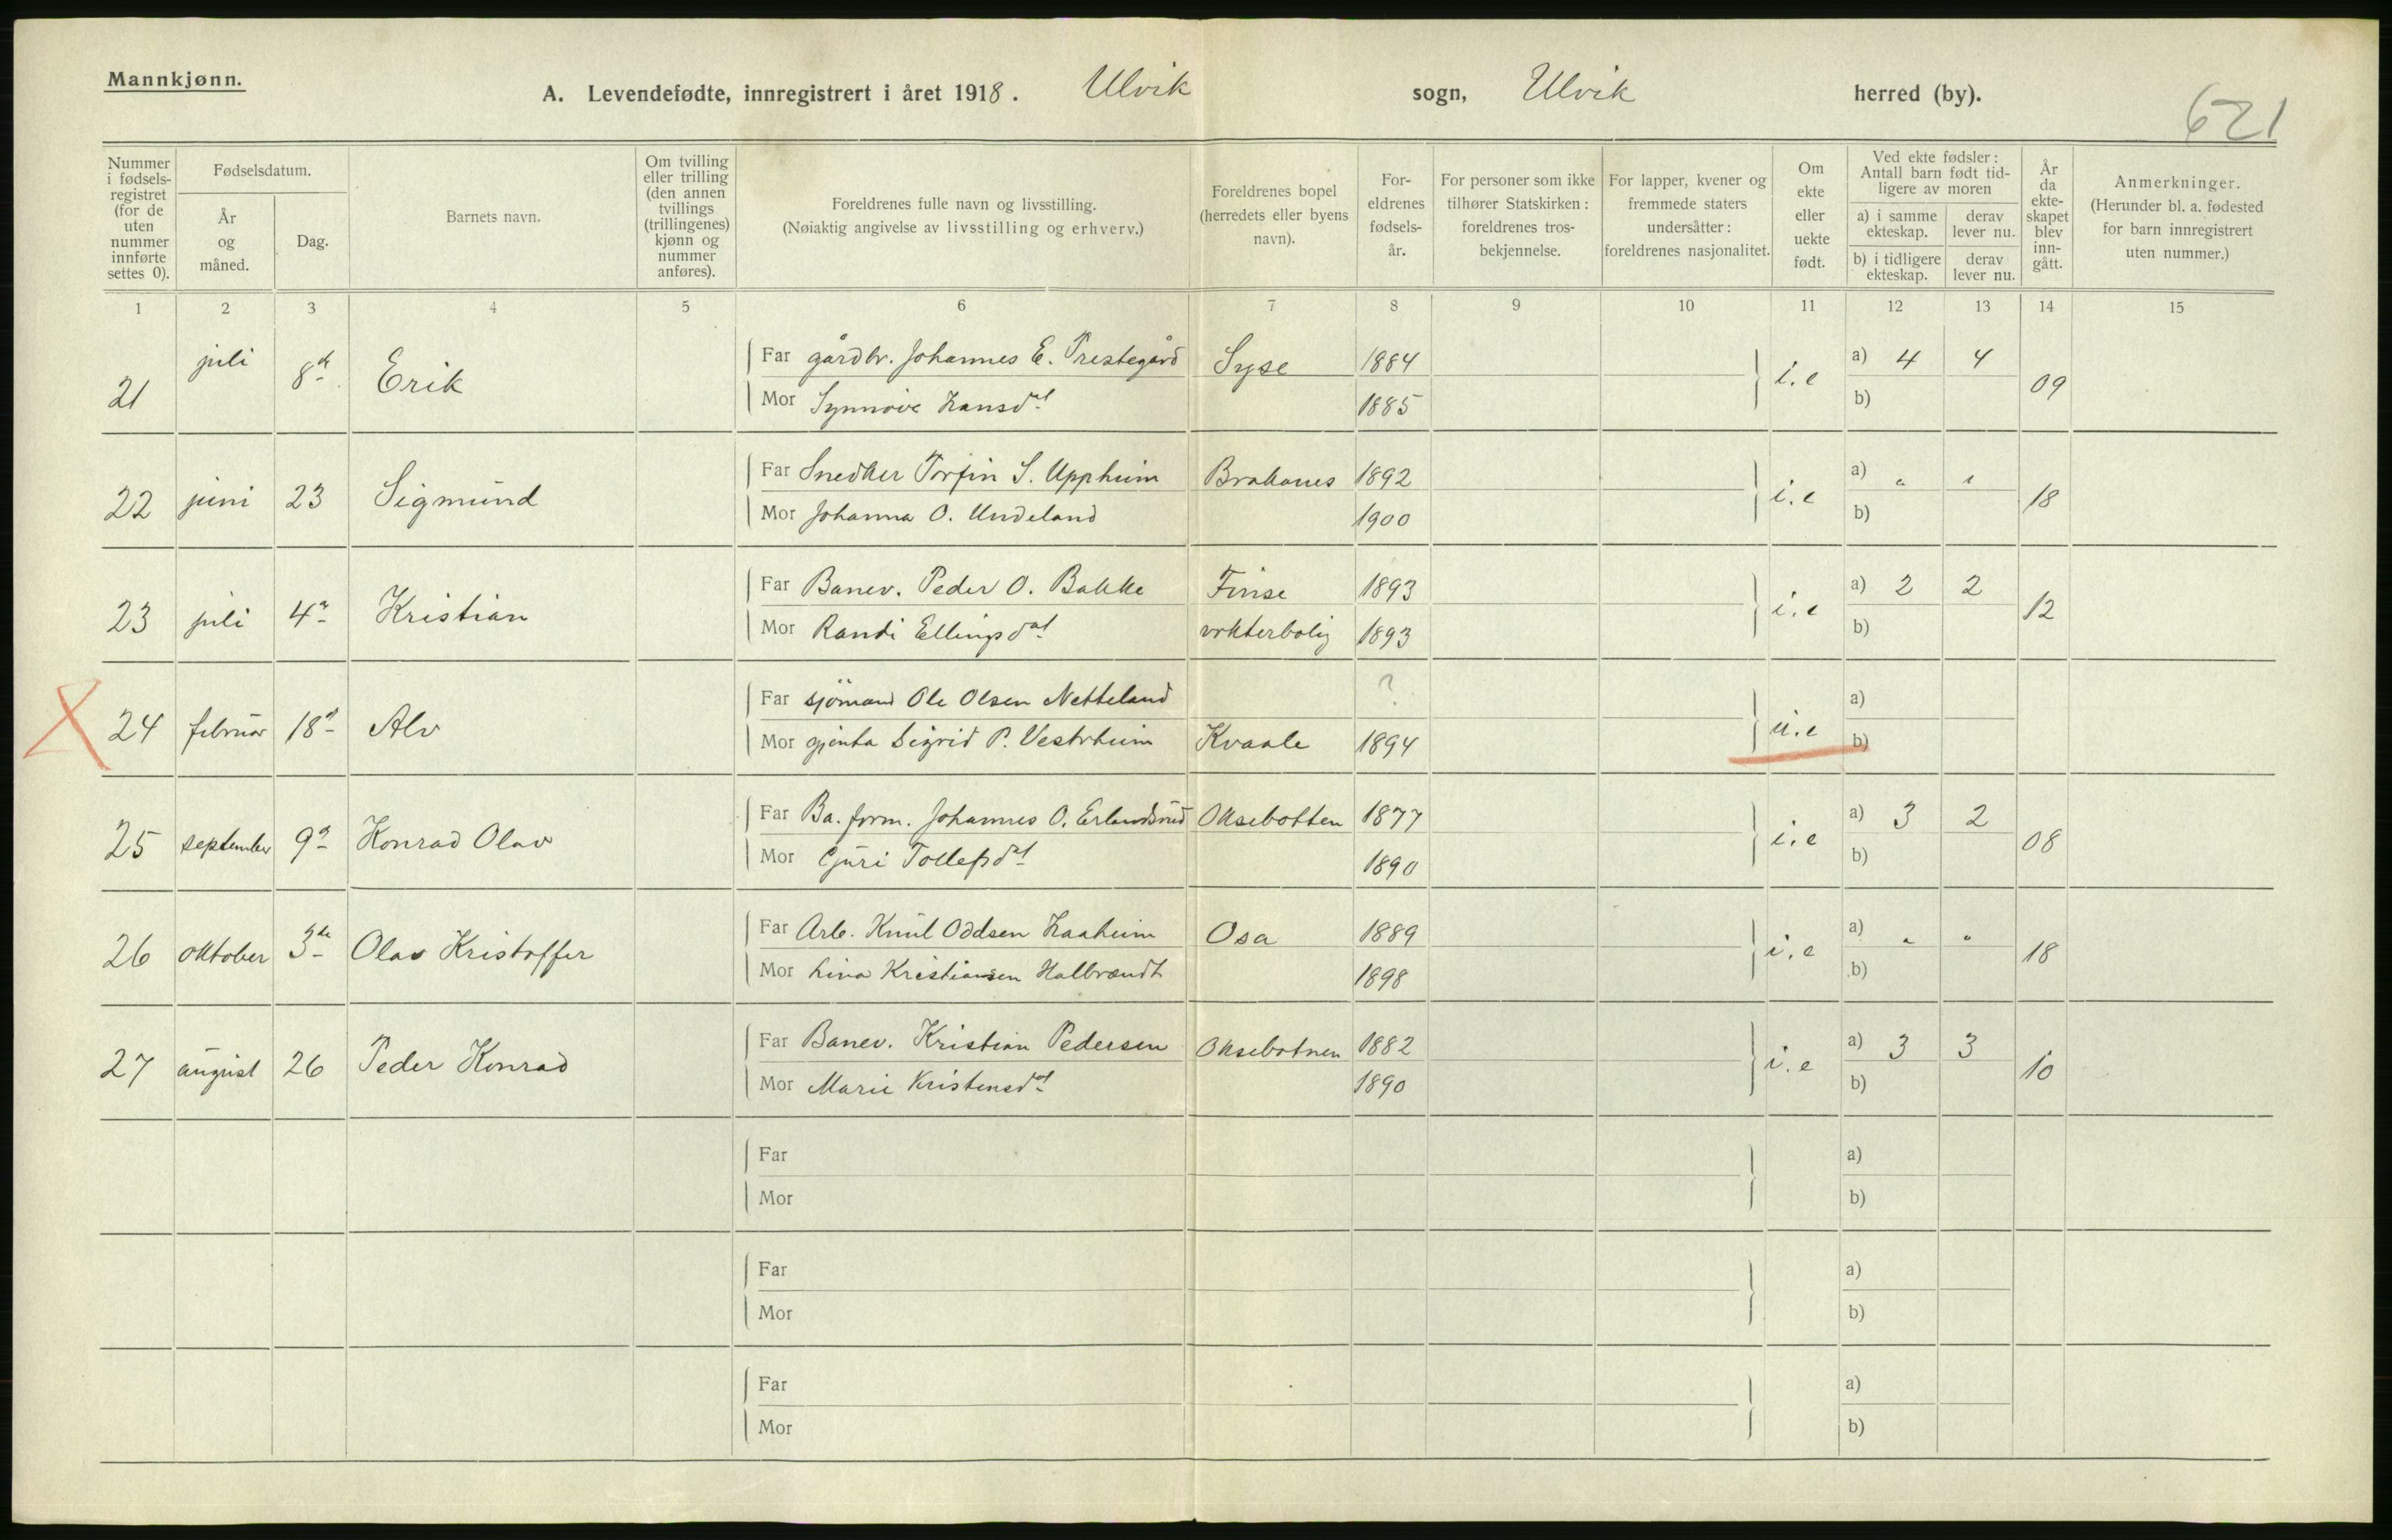 Mannkjønn.
A. Levendefødte, innregistrert i året 1918. Ulvik sogn, Ulvik herred (by).
621
Nummer i fødsels-registret (for de uten nummer innførte settes 0).
Fødselsdatum.
År og måned.
Dag.
Barnets navn.
Om tvilling eller trilling (den annen tvillings (trillingenes) kjønn og nummer anføres).
Foreldrenes fulle navn og livsstilling.
(Nøiaktig angivelse av livsstilling og erhverv.)
Foreldrenes bopel (herredets eller byens navn).
For-eldrenes fødsels-år.
For personer som ikke tilhører Statskirken: foreldrenes tros-bekjennelse.
For lapper, kvener og fremmede staters undersåtter: foreldrenes nasjonalitet.
Om ekte eller uekte født.
Ved ekte fødsler: Antall barn født tid-ligere av moren
a) i samme ekteskap.
derav lever nu.
b) i tidligere ekteskap.
derav lever nu.
År da ekte-skapet blev inn-gått.
Anmerkninger.
(Herunder bl. a. fødested for barn innregistrert uten nummer.)
1 2 3 4 5 6 7 8 9 10 11 12 13 14 15
21 juli 8de Erik Far gårdbr. Johannes E. Prestegård Syse 1884 i.e a) 4 4 09
Mor Synnøve Hansdat 1885 b)
22 juni 23 Sigmund Far Snedker Torfin S. Uppheim Brakanes 1892 i.e a) " " 18
Mor Johanna O. Undeland 1900 b)
23 juli 4de Kristian Far Banev. Peder O. Bakke Finse 1893 i.e a) 2 2 12
Mor Randi Ellingsdat vokterbolig 1893 b)
24 februar 18d Alv Far sjömand Ole Olsen Netteland ? u.e a)
Mor gjenta Sigrid P. Vestrheim Kvaale 1894 b)
25 september 9d Konrad Olav Far Ba. form. Johannes O. Erlandsrud Oksebotten 1877 i.e a) 3 2 08
Mor Gjuri Tollefsdat 1890 b)
26 oktober 3de Olav Kristoffer Far Arb. Knut Oddsen Haaheim Osa 1889 i.e a) " " 18
Mor Lina Kristiansen Halbrendt 1898 b)
27 august 26 Peder Konrad Far Banev. Kristian Pedersen Oksebotnen 1882 i.e a) 3 3 10
Mor Marie Kristensdat 1890 b)
Far a)
Mor b)
Far a)
Mor b)
Far a)
Mor b)